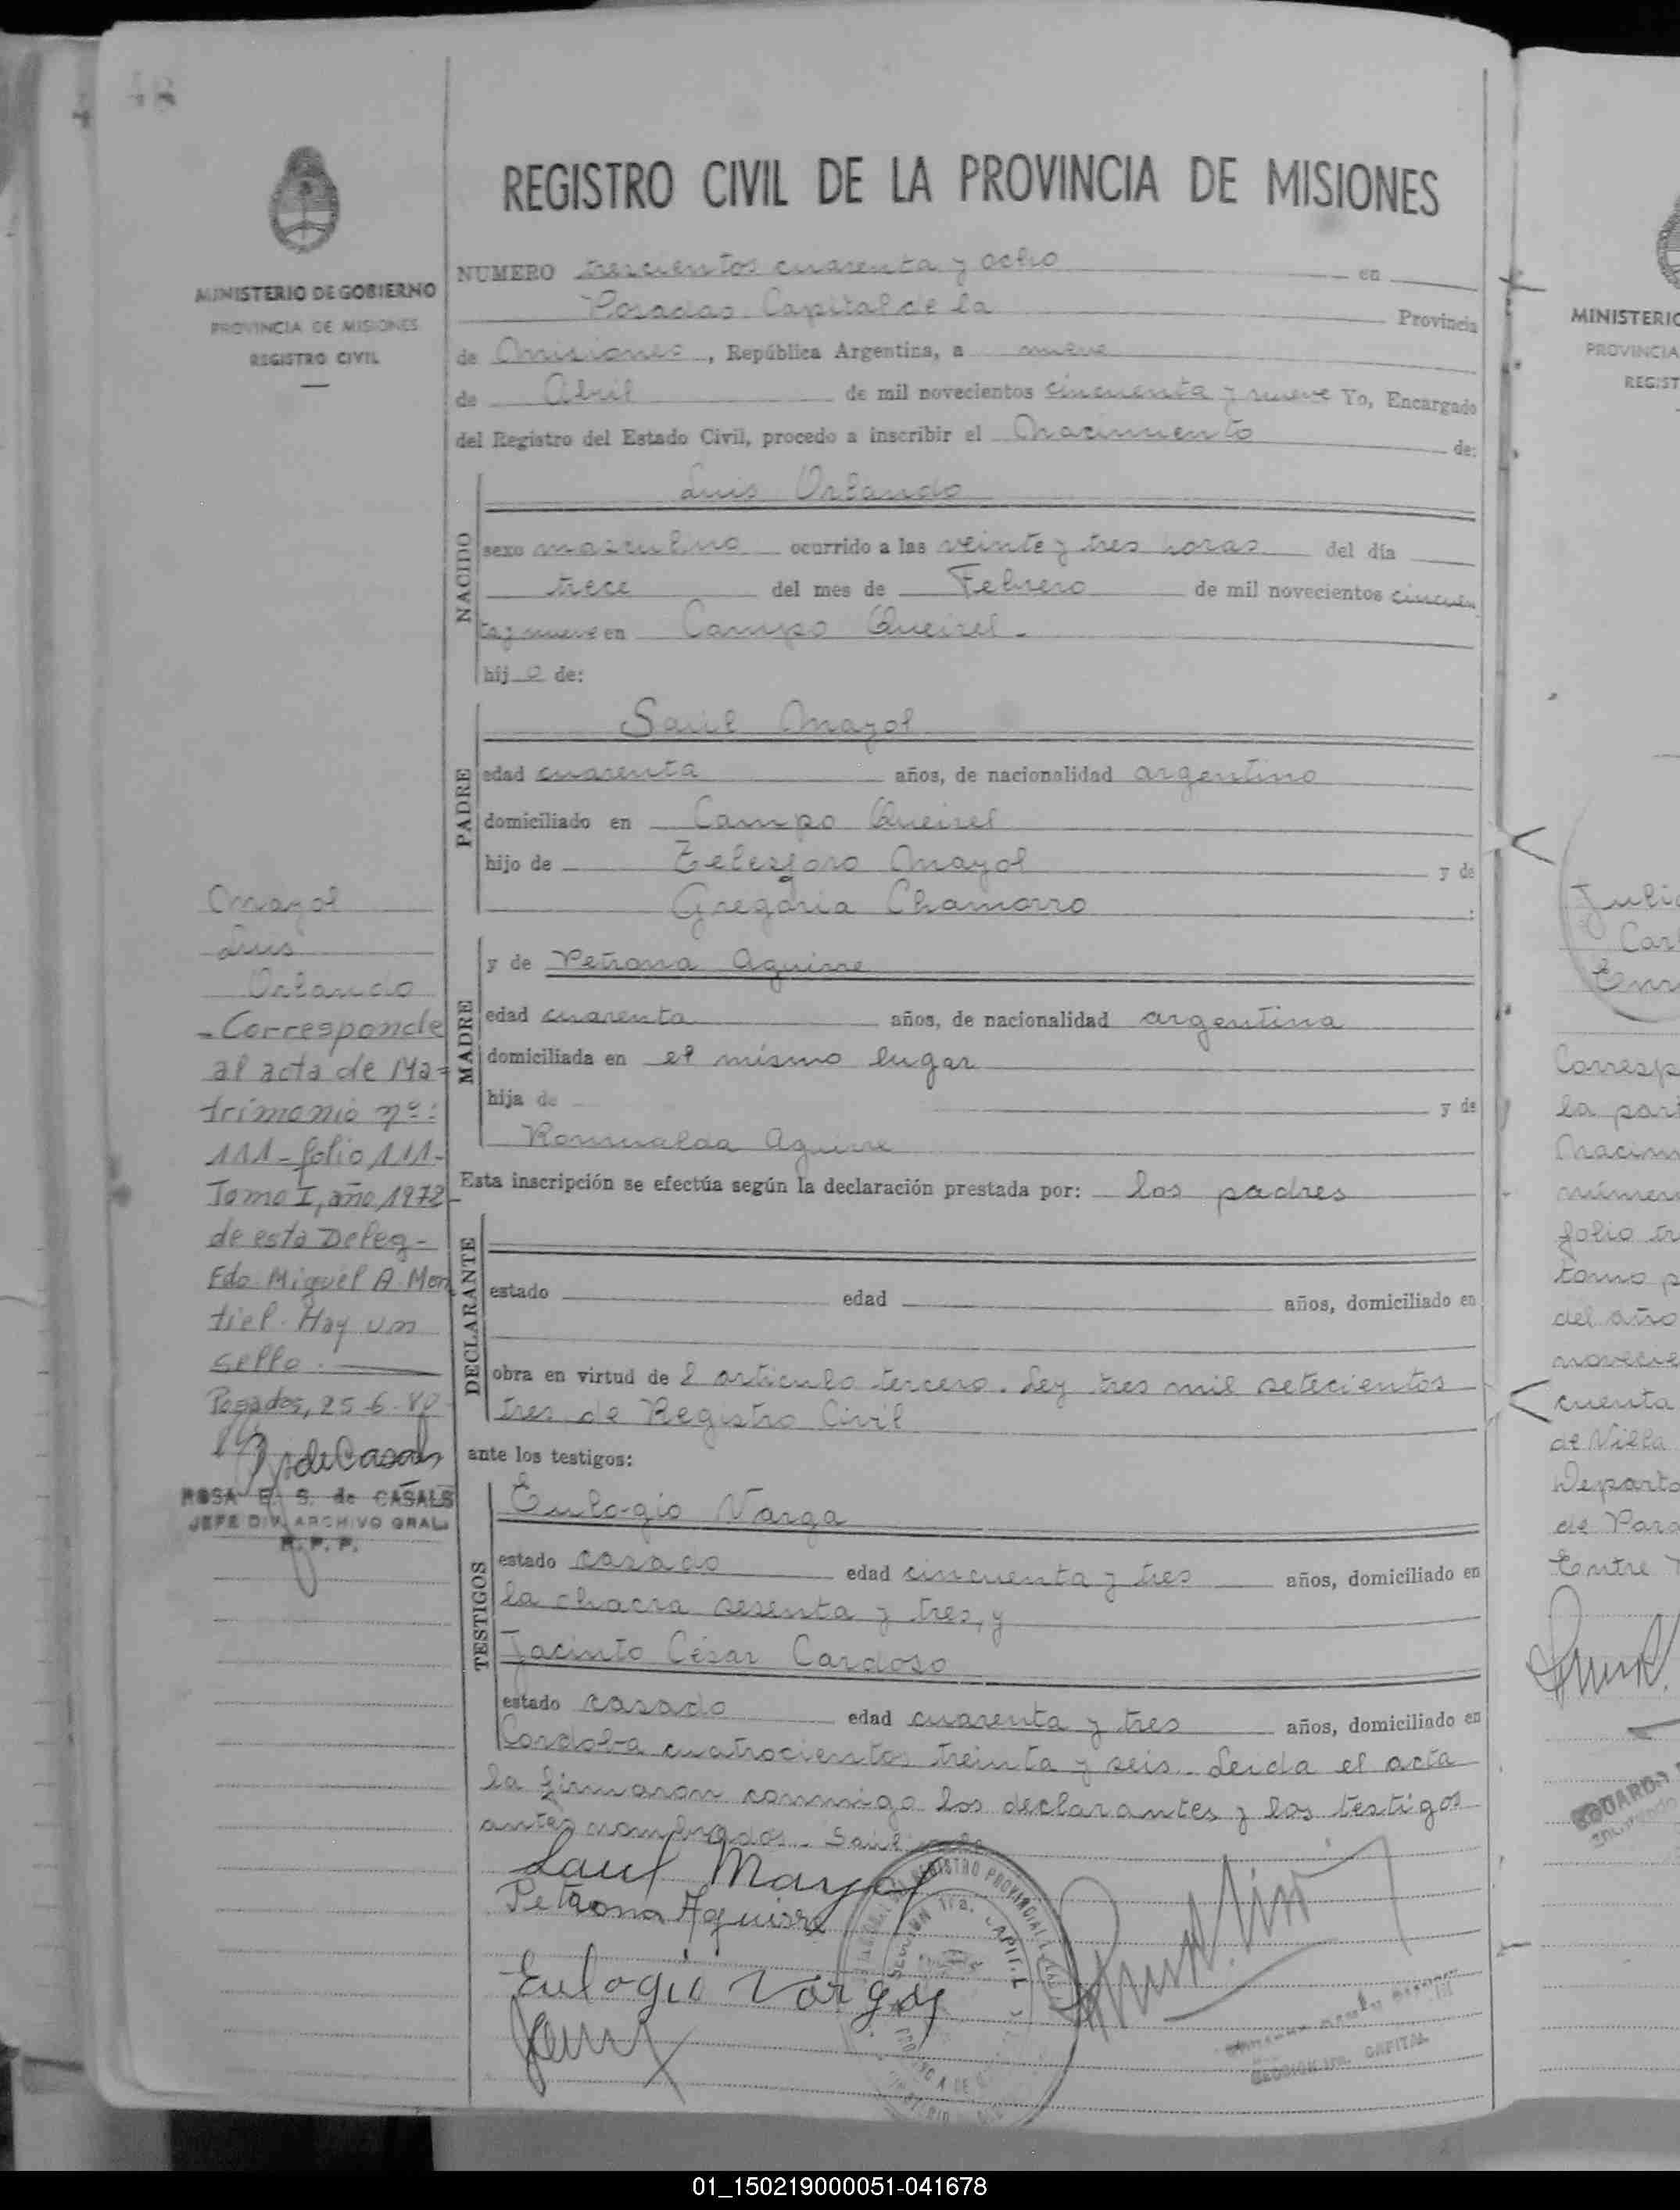 48
REGISTRO CIVIL DE LA PROVINCIA DE MISIONES
MINISTERIO DE GOBIERNO
PROVINCIA DE MISIONES
REGISTRO CIVIL
NUMERO trescientos cuarenta y ocho en
Posadas Capital de la Provincia
de Misiones, República Argentina, a nueve
de Abril de mil novecientos cincuenta y nueve Yo, Encargado
del Registro del Estado Civil, procedo a inscribir el Nacimiento de:
NACIDO
Luis Orlando
sexo masculino ocurrido a las veinte y tres horas del día
trece del mes de Febrero de mil novecientos cincuen
ta y nueve en Campo Queirel.
hijo de:
PADRE
Saúl Mayol
edad cuarenta años, de nacionalidad argentino
domiciliado en Campo Queirel
hijo de Telesforo Mayol y de
Gregoria Chamorro ;
MADRE
y de Petrona Aguirre
edad cuarenta años, de nacionalidad argentina
domiciliada en el mismo lugar
hija de y de
Romualda Aguirre
Esta inscripción se efectúa según la declaración prestada por: los padres
DECLARANTE
estado edad años, domiciliado en
obra en virtud de l artículo tercero. Ley tres mil setecientos
tres de Registro Civil
ante los testigos:
TESTIGOS
Eulogio Varga
estado casado edad cincuenta y tres años, domiciliado en
la chacra sesenta y tres, y
Jacinto César Cardoso
estado casado edad cuarenta y tres años, domiciliado en
Cordoba cuatrocientos treinta y seis. Leida el acta
la firmaron conmigo los declarantes y los testigos
antes nombrados. Saúl
Saul Mayol
Petrona Aguirre
Eulogio Vargas
REGISTRO PROVINCIAL
SECCION 1ra. CAPITAL
SECCION 1ra. CAPITAL
Mayol
Luis
Orlando
- Corresponde
al acta de Ma=
trimonio nº:
111-folio 111-
Tomo I, año 1972-
de esta Deleg-
Fdo. Miguel A. Mon
tiel. Hay un
sello.
Posadas, 25-6-80
R S de Casals
ROSA E. S. de CASALS
JEFE DIV. ARCHIVO GRAL.
R. P. P.
MINISTERIO
PROVINCIA
REGIST
Julio
Carl
Enri
Corresp
la part
Nacim
número
folio tr
tomo p
del año
novecie
cuenta
de Villa
Departa
de Para
Entre
EDUARDO
Encargado
01_150219000051-041678